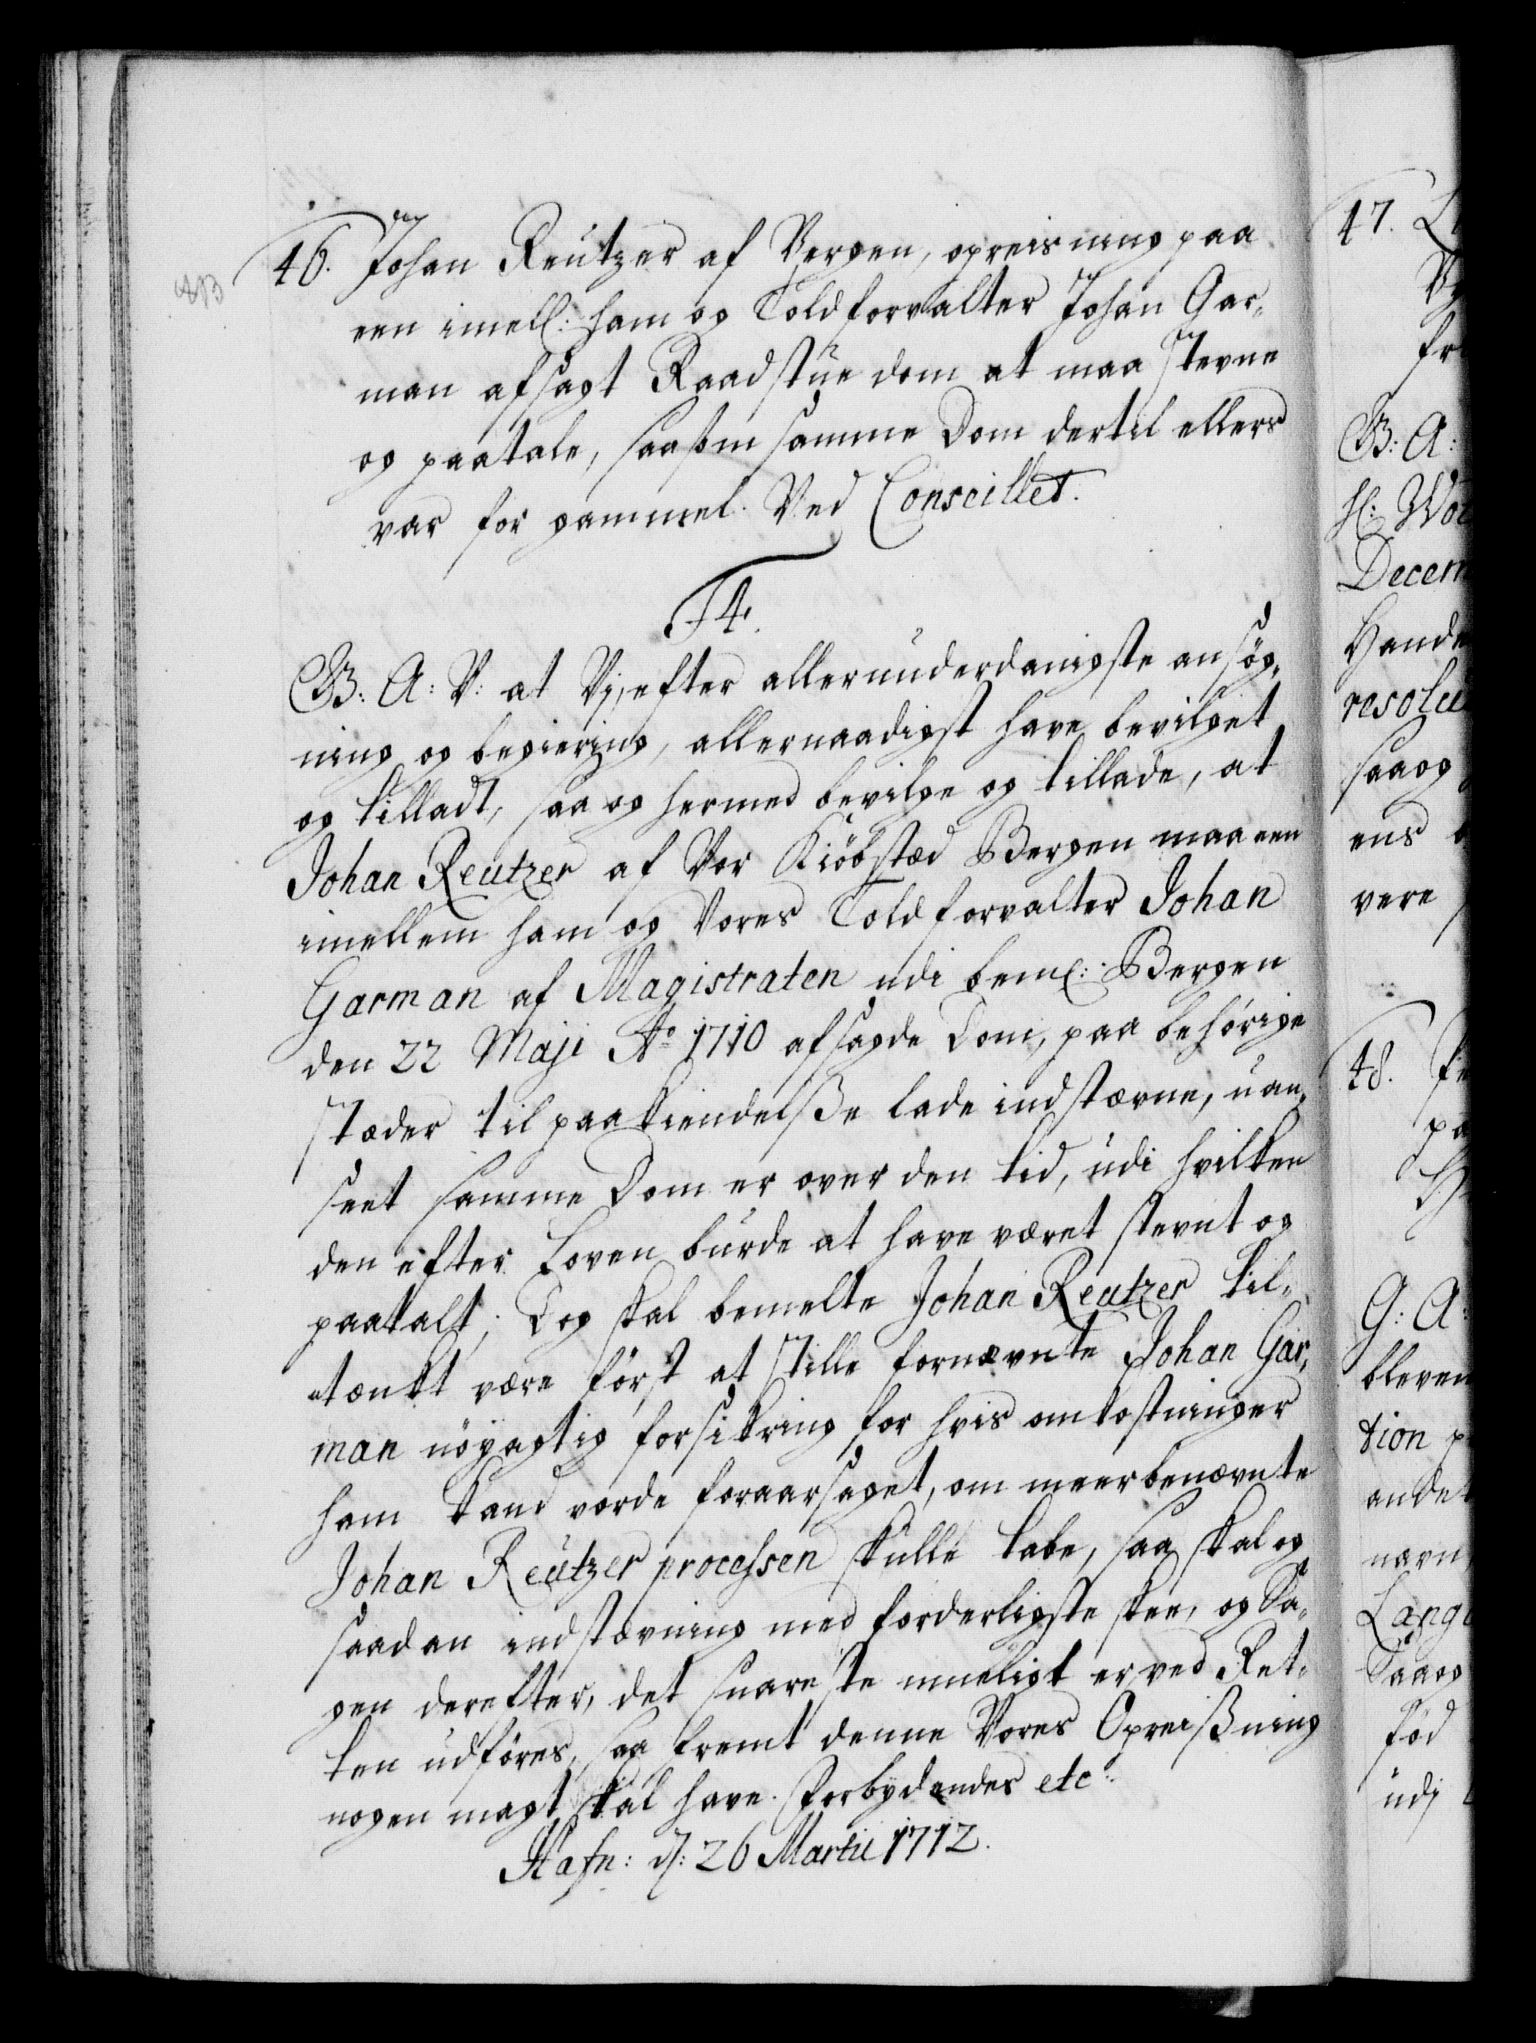 46. Johan Reützer af Bergen, opreisning paa
een imell: ham og Toldforvalter Johan Gar-
man afsagt Raadstüe dom at maa stevne
og paatale, saasom samme Dom dertil ellers
var for gammel. Ved Conseillet.
F4.
G: A: V: at Vj, efter allerunderdanigste ansøg-
ning og begiering, allernaadigst have bevilget
og tilladt, saa og hermed bevilge og tillade, at
Johan Reutzer af Vor Kiöbsted Bergen maa een
imellem ham og Vores Toldforvalter Johan
Garman af Magistraten udi bem: Bergen
den 22 Maji Ao 1710 afsagde Dom, paa behørige
stæder til paakiendelße lade indstævne, uan-
seet samme Dom er over den tid, udi hvilken
den efter Loven burde at have været stevnt og
paatalt; Dog skal bemelte Johan Reutzer til-
tænkt være først at stille fornævnte Johan Gar-
man nöyagtig forsikring for hvis omkostninger
ham kand vorde foraarsaget, om meerbenævnte
Johan Reützer processen skulle tabe, saa skal og
saadan indstævning med forderligste skee, og Sa-
gen derefter, det snareste mueligt er ved Ret-
ten udføres, saa fremt denne Vores Opreißning
nogen magt skal have. Forbydendes etc:
Hafn: d: 26 Martii 1712.
47.
G: A:
Decem
Hande
saaog
ens
vere
48.
G: A:
bleven
tion
andet
nævn
Saaog
föd
udj